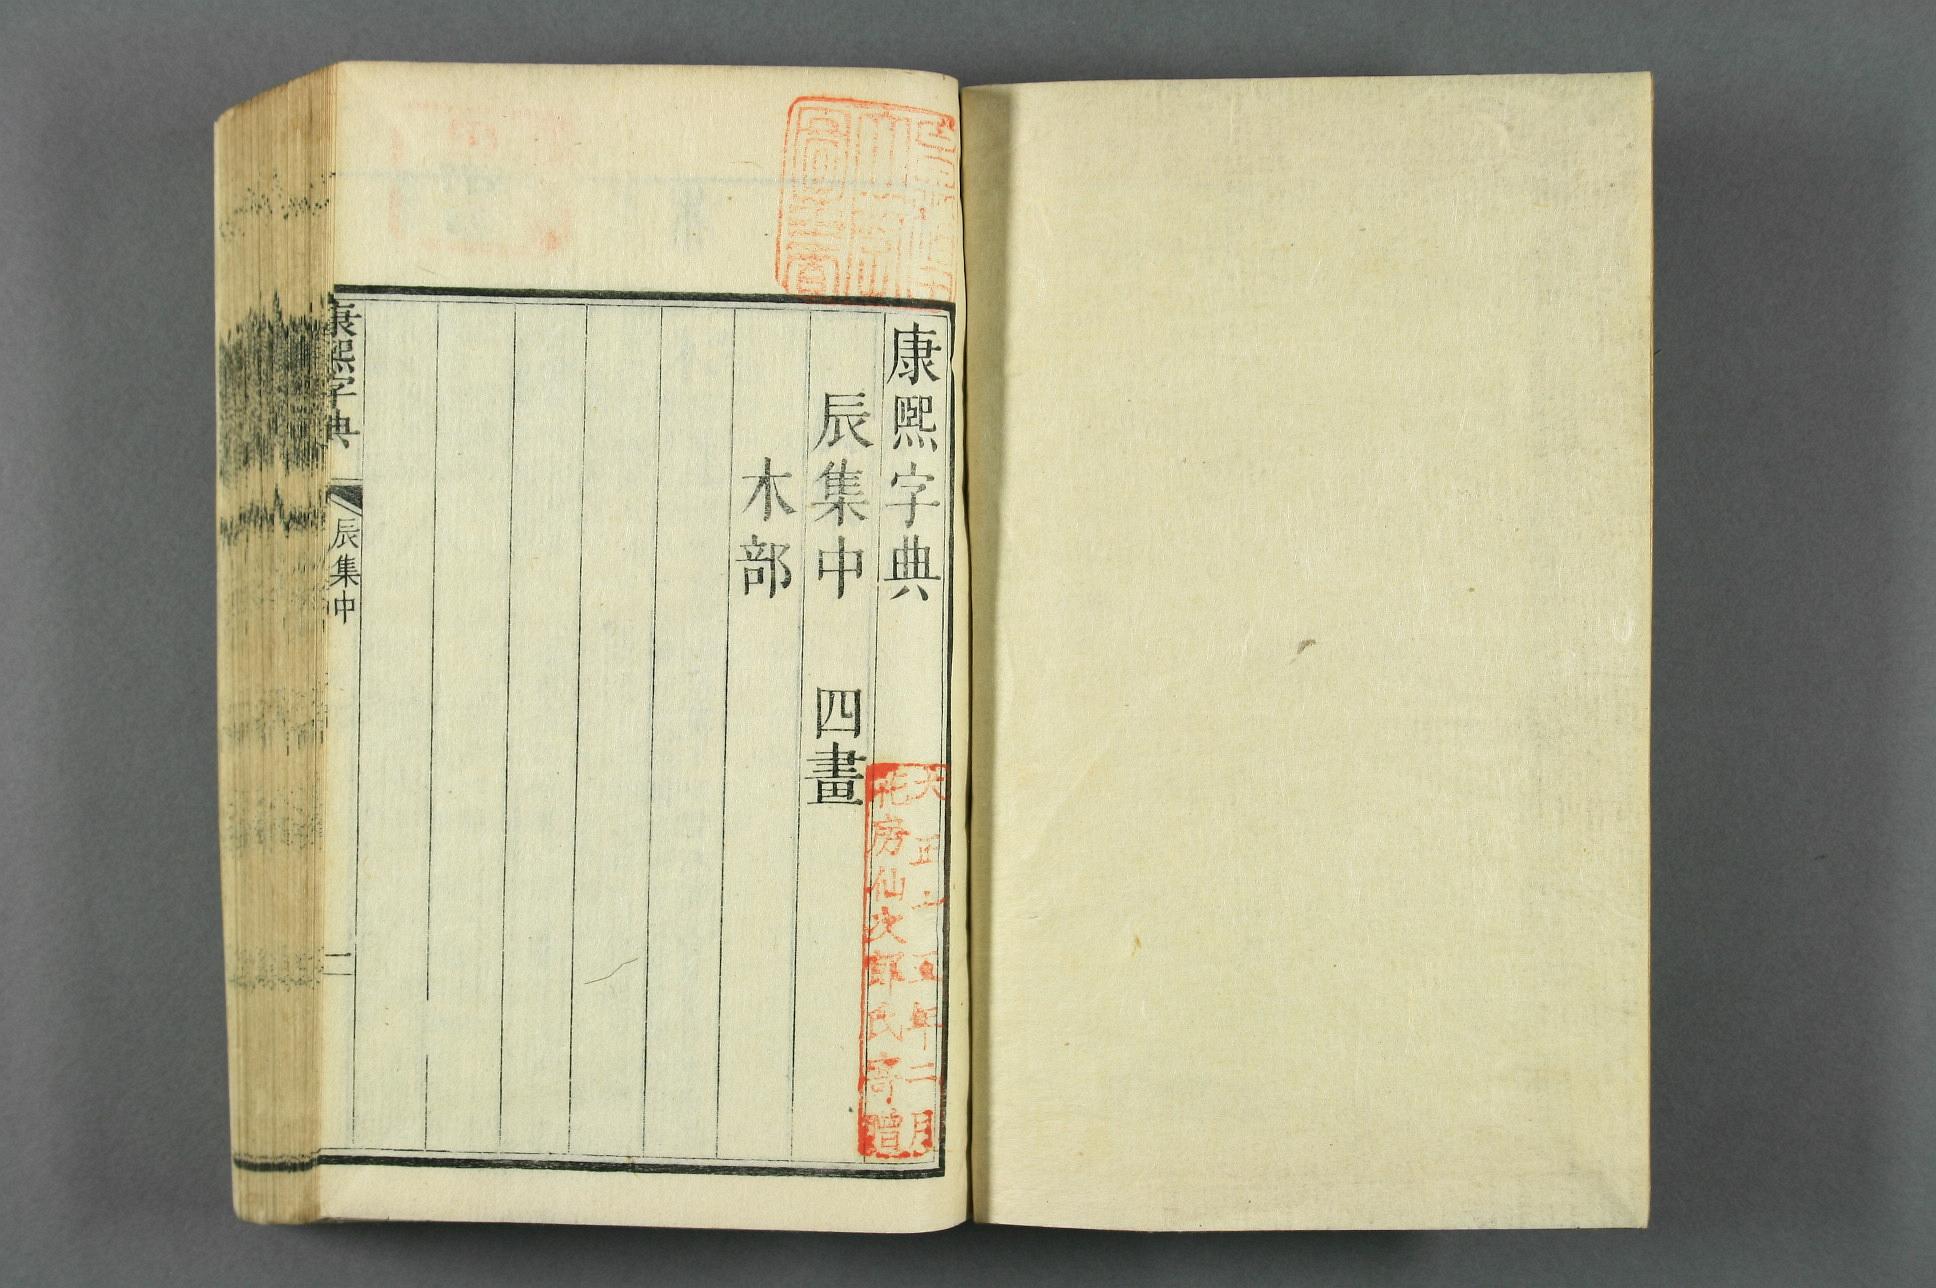 康熙字典
辰集中 四畫
木部
康熙字典
辰集中
一
大正十五年二月
花房仙次郎氏寄贈